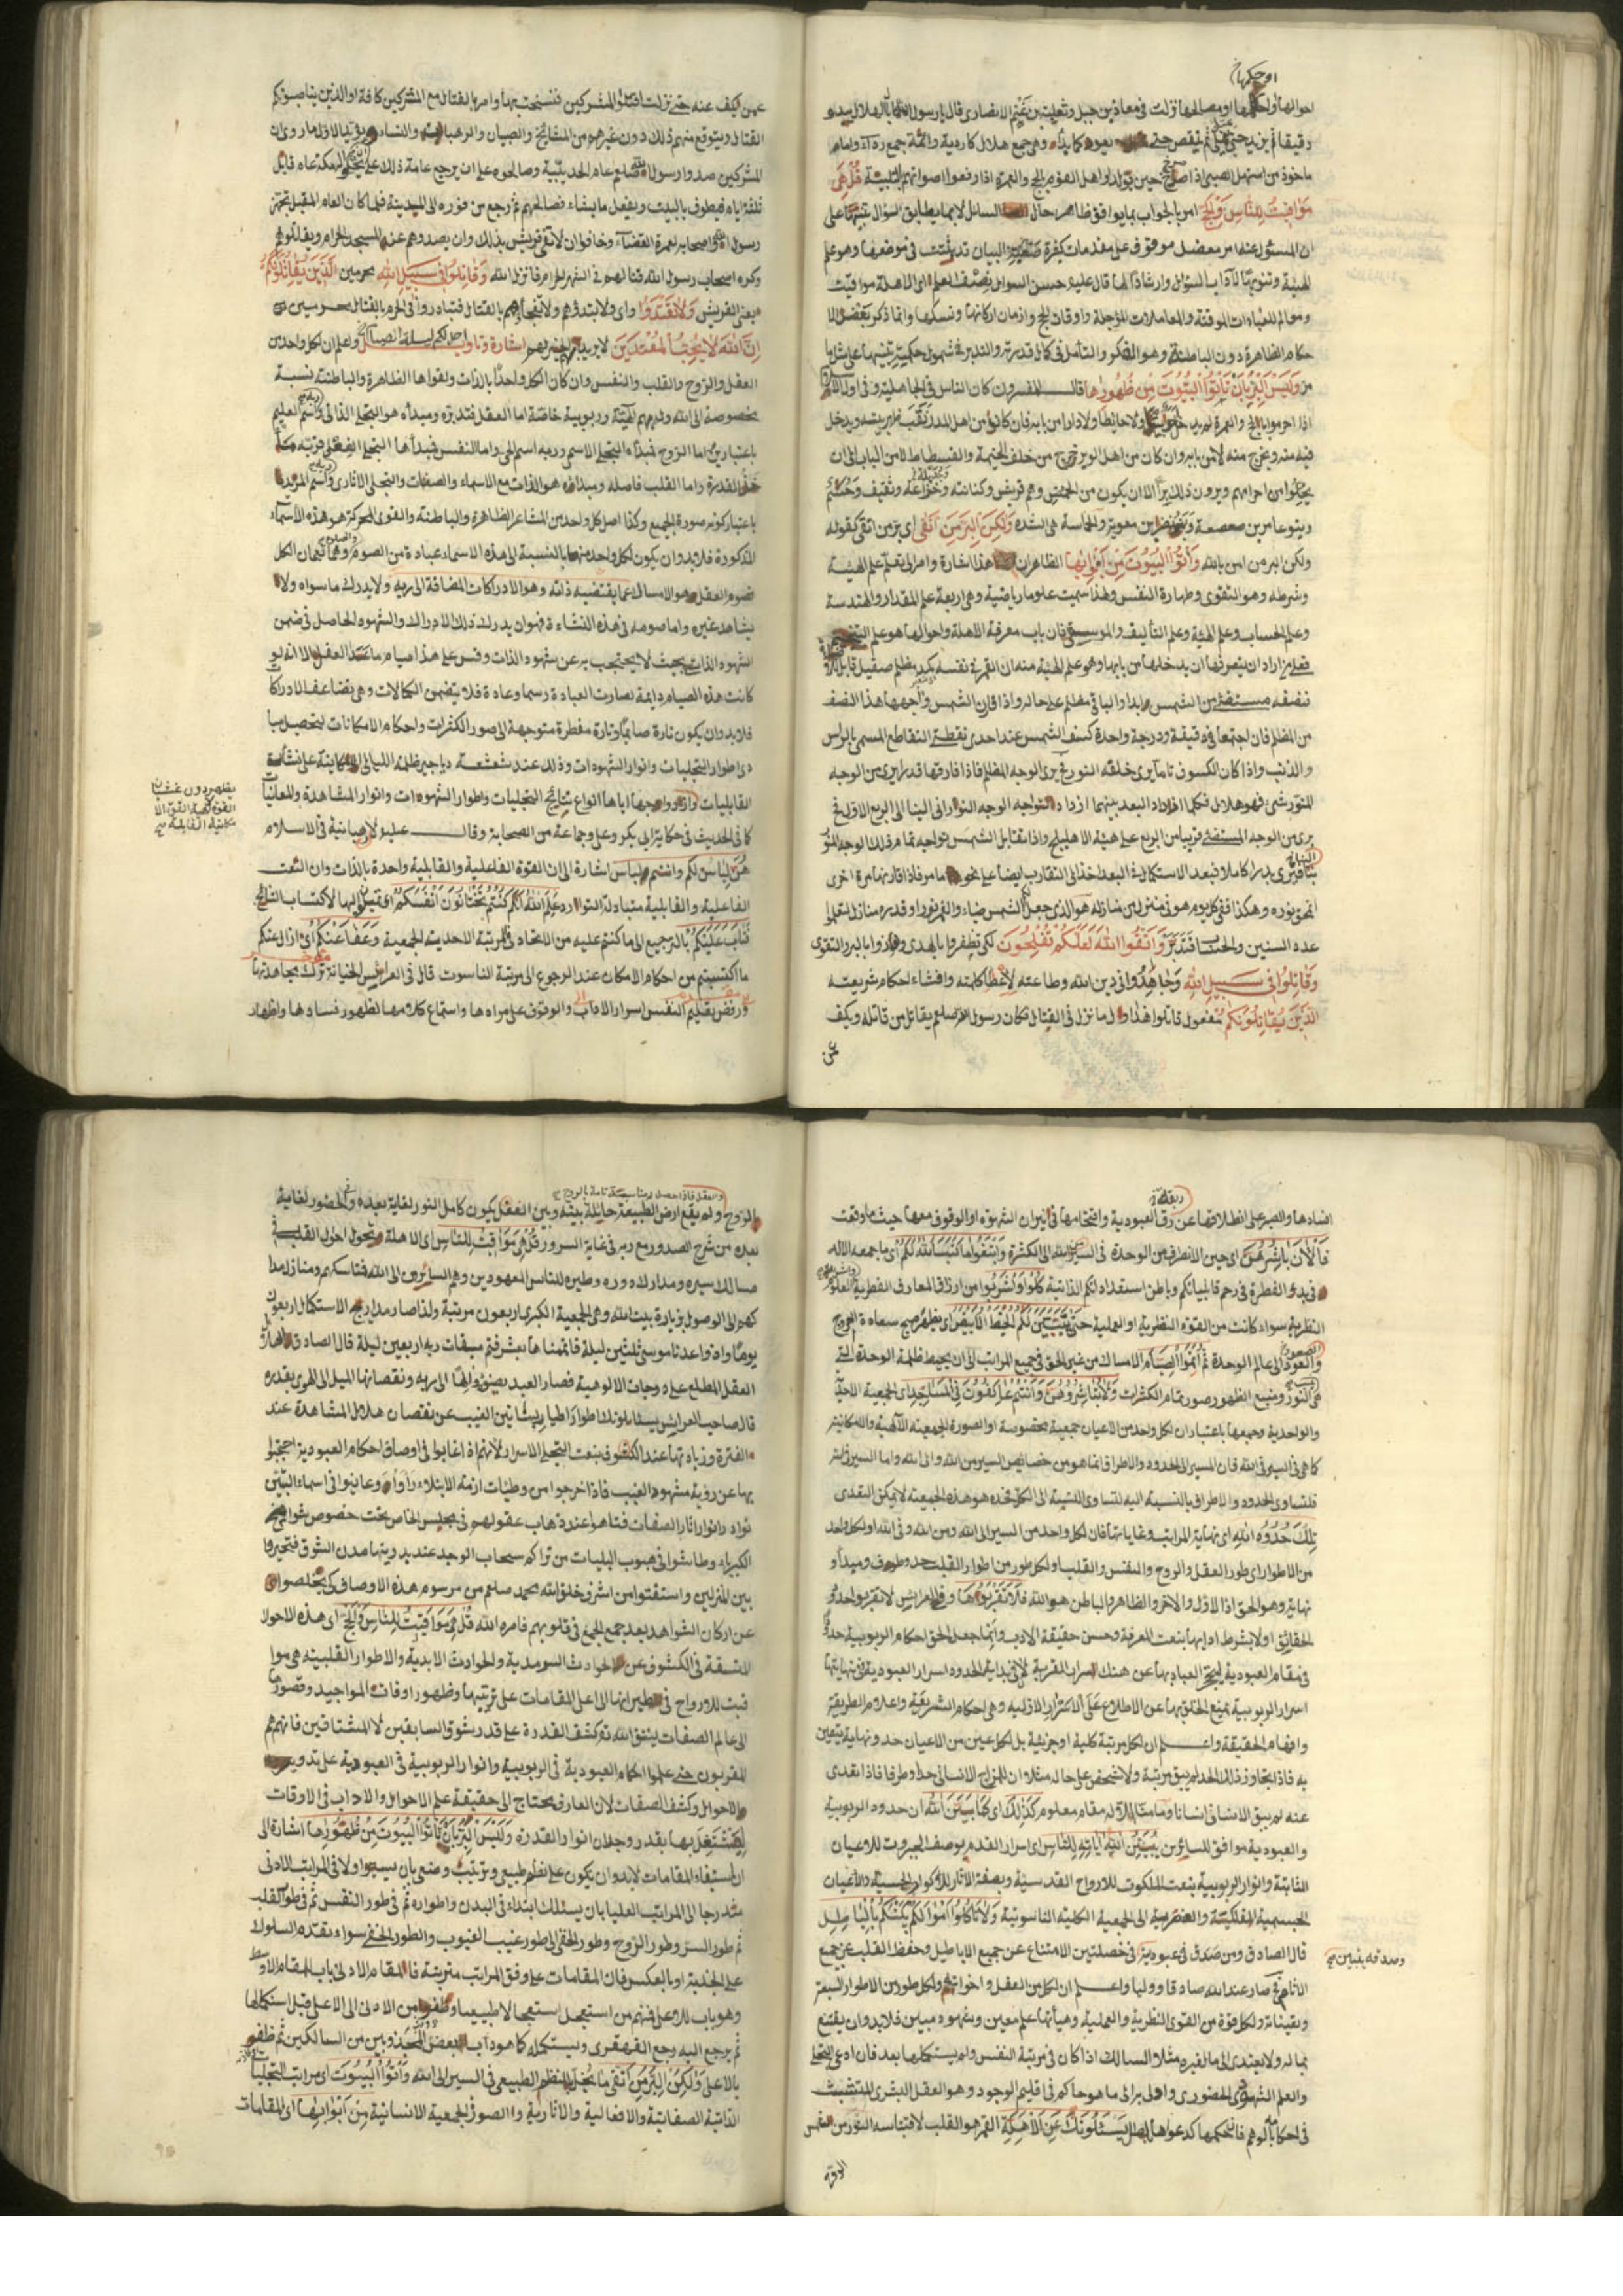 او حكمها
احوالها او حكمها او مصالحها نزلت في معاذ بن جبل وثعلبة بن غنم الانصاري قال يا رسول الله ما بال الهلال يبدو
دقيقا ثم يزيد حتى ثم ينقص حتى يعود كما بدأ وهي جمع هلال كاردية وائمة جمع رداء وامام
ماخوذ من استهل الصبي اذا صرخ حين يولد واهل القوم بالحج والعمرة اذا رفعوا اصواتهم بالتلبية قُلْ هِيَ
مَوَاقِيتُ لِلنَّاسِ وَالْحَجِّ امر بالجواب بما يوافق ظاهر حال السائل لا بما يطابق السؤال تنبيها على
ان المسئول عنه امر معضل موقوف على مقدمات كثيرة البيان قد في موضعها وهو علم
الهيئة لآداب السؤال وارشادا لها قال عليه حسن السؤال نصف العلم اى الاهلة مواقيت
ومعالم للعبادات الموقتة والمعاملات المؤجلة واوقات الحج وازمان اركانها ونسكها وانما ذكر بعض الا
حكام الظاهرة دون الباطنة وهو التفكر والتأمل في كمال قدرته والتدبر في شمول حكمته تنبيها على
وَلَيْسَ الْبِرُّ بِأَنْ تَأْتُوا الْبُيُوتَ مِنْ ظُهُورِهَا قال المفسرون كان الناس في الجاهلية وفي اول الاسلام
اذا احرموا بالحج والعمرة لم يدخل ولا حائطا ولا دارا من بابه فان كان من اهل المدر نقب بيته ويدخل
فيه منه ويخرج منه لا من بابه وان كان من اهل الوبر خرج من خلف الخيمة والفسطاط لا من الباب الى ان
يحلوا من احرامهم ويرون ذلك برا الا ان يكون من الحمس وهم قريش وكنانة وخزاعة وثقيف وخثعم
وبنو عامر بن صعصعة وبنو نضر بن معوية والحماسة هي الشدة وَلَكِنَّ الْبِرَّ مَنِ اتَّقَى اى بر من اتقى كقوله
ولكن البر من امن بالله وَأْتُوا الْبُيُوتَ مِنْ أَبْوَابِهَا الظاهر ان هذا اشارة وامر الى تعلم علم الهيئة
وشرطه وهو التقوى وطهارة النفس ولهذا سميت علوما رياضية وهي اربعة علم المقدار والهندسة
وعلم الحساب وعلم الهيئة وعلم التأليف والموسيقى فان باب معرفة الاهلة واحوالها هو علم
فعلى من اراد ان يتعرفها ان يدخلها من بابها وهو علم الهيئة منه ان القمر في نفسه كمد مظلم صقيل قابل
فنصفه مستضئ من الشمس ابدا والباقي مظلم على حاله واذا قارن الشمس واجهها هذا النصف
من المظلم فان اجتمعا في دقيقة ودرجة واحدة كسف الشمس عند احدى نقطتي التقاطع المسمى بالراس
والذنب واذا كان الكسوف تاما يرى خلقه النور يرى الوجه المظلم فاذا فارقها قدرا يرى من الوجه
المنور شئ فهو هلال فكلما ازداد البعد بينهما ازداد تواجه الوجه النوراني الينا الى الربع الاول
يرى من الوجه المستضئ قريبا من الربع على هيئة الاهليلج واذا تقابل الشمس تواجه تمام ذلك الوجه المنور
الينا فيرى بدرا كاملا فبعد الاستكمال في البعد اخذا في التقارب ايضا على نحو ما مر فاذا قارنها مرة اخرى
انمحق نوره وهكذا ففي كل يوم هو في منزل من منازله هو الذي جعل الشمس ضياء والقمر نورا وقدره منازل لتعلموا
عدد السنين والحساب فتدبر وَاتَّقُوا اللَّهَ لَعَلَّكُمْ تُفْلِحُونَ لكى تظفروا بالهدى والبر والتقوى
وَقَاتِلُوا فِي سَبِيلِ اللَّهِ وَجَاهِدُوا في دين الله وطاعته لإعطاء كلمته وافشاء احكام شريعته
الَّذِينَ يُقَاتِلُونَكُمْ مفعول قاتلوا هذا اول ما نزل في القتال فكان رسول الله صلعم يقاتل من قاتله ويكف
عمن
عمن يكف عنه حتى نزلت اقتلوا المشركين فنسخت بها وامر بالقتال مع المشركين كافة او الذين يناصبونكم
القتال ويتوقع منهم ذلك دون غيرهم من المشائخ والصبيان والرهبان والنساء ويؤيد الاول ما روى ان
المشركين صدوا رسول الله صلعم عام الحديبية وصالحوه على ان يرجع عامه ذلك على ان مكة عام قابل
ثلثة ايام فيطوف بالبيت ويفعل ما يشاء فصالحهم ثم رجع من فوره الى المدينة فلما كان العام المقبل تجهز
رسول الله واصحابه لعمرة القضاء وخافوا ان لا تفي قريش بذلك وان يصدوهم عن المسجد الحرام ويقاتلوهم
وكره اصحاب رسول الله قتالهم في الشهر الحرام فانزل الله وَقَاتِلُوا فِي سَبِيلِ اللَّهِ محرمين الَّذِينَ يُقَاتِلُونَكُمْ
يعني القريش وَلَا تَعْتَدُوا اى ولا تبتدؤهم ولا تفجأوهم بالقتال فتبادروا في الحرم بالقتال محرمين
إِنَّ اللَّهَ لَا يُحِبُّ الْمُعْتَدِينَ لا يريد الخير بهم اشارة وتأويل احل لكم ليلة الصيام واعلم ان لكل واحد من
العقل والروح والقلب والنفس وان كان الكل واحدا بالذات ولقواها الظاهرة والباطنة نسبة
مخصوصة الى الله وربهم الهيئة وربوبية خاصة اما العقل فتدبره ومبدأه هو التجلي الذاتي واسم العليم
باعتبارين اما الروح فمبدأه التجلي الاسمى وربه اسم الحى واما النفس فمبدأها التجلي الفعلى فربته
القدرة واما القلب فاصله ومبدأه هو الذات مع الاسماء والصفات والتجلي الاثارى واسم المريد
باعتبار كونه صورة الجميع وكذا اصل كل واحد من المشاعر الظاهرة والباطنة والقوى المحركة هو هذه الاسماء
المذكورة فلابد وان يكون لكل واحد منها بالنسبة الى هذه الاسماء عبادة من الصوم وهما تعمان الكل
فصوم العقل هو الامساك عما يقتضيه ذاته وهو الادراكات المضافة الى ربه ولا يدرك ما سواه ولا
يشاهد غيره واما صومه في هذه النشاءة فهو ان يدرك ذلك الامر والشهود الحاصل في ضمن
الشهود الذاتي بحيث لا يحتجب به عن شهود الذات وقس على هذا صيام ما عدا العقل الا انه لو
كانت هذه الصيام دائمة لصارت العبادة رسما وعادة فلا يتضمن الكمالات وهي تضاعف الادراك
فلابد وان يكون تارة صائما وتارة مفطرة متوجهة الى صور الكثرات واحكام الامكانات لتحصيل مبا
دى اطوار التجليات وانوار الشهودات وذلك عند شعشعة دياجير ظلمة الليالي الكاينة على نشأت
القابليات وازدواجها اياها انواع نتايج التجليات واطوار الشهودات وانوار المشاهدة والمعاينات
كما في الحديث في حكاية ابي بكر وعلي وجماعة من الصحابة وقال عليه لا رهبانية في الاسلام
هن لباس لكم وانتم لباس اشارة الى ان القوة الفاعلية والقابلية واحدة بالذات وان النعت
الفاعلية والقابلية متبادلة التوارد عَلِمَ اللَّهُ أَنَّكُمْ كُنْتُمْ تَخْتَانُونَ أَنْفُسَكُمْ اليها لاكتساب النتائج
فَتَابَ عَلَيْكُمْ بالترجيع الى ما كنتم عليه من الاتحاد في المرتبة الاحدية الجمعية وَعَفَا عَنْكُمْ اى ازال عنكم
ما اكتسبتم من احكام الامكان عند الرجوع الى مرتبة الناسوت قال في العرائس الخيانة ترك مجاهدتها
ورفض تعليم النفس اسرار الاداب والوقوف على مرادها واستماع كلامها لظهور فسادها واظهار
يظهر دون غشيان
القوة القوة الا
مكانية القابلة
افسادها والصبر على انطلاقها عن ربقة رق العبودية واقتحامها في نيران الشهوة او الوقوف معها حيث ما وقعت
فَالْآنَ بَاشِرُوهُنَّ اى حين الانصراف من الوحدة في السير الى الكثرة وَابْتَغُوا مَا كَتَبَ اللَّهُ لَكُمْ اى ما جمعه الاله
في بدو الفطرة في رحم قابلياتكم وباطن استعداداتكم الذاتية كُلُوا وَاشْرَبُوا من ارزاق المعارف الفطرية
النظرية سواء كانت من القوة النظرية او العملية حَتَّى يَتَبَيَّنَ لَكُمُ الْخَيْطُ الْأَبْيَضُ اى يظهر صبح سعادة العروج
والعود الى عالم الوحدة ثُمَّ أَتِمُّوا الصِّيَامَ الامساك من غير الحق في جميع المراتب الى ان يحيط ظلمة الوحدة التي
هي النور ومنبع الظهور صور تمام الكثرات وَلَا تُبَاشِرُوهُنَّ وَأَنْتُمْ عَاكِفُونَ فِي الْمَسَاجِدِ اى الجمعية الاحدية
والواحدية وجمعها باعتبار ان لكل واحد من الاعيان جمعية مخصوصة او الصورة الجمعية الالهية والامكانية
كما هي في السير في الله فان المسير الى الحدود والاطراف انما هو من خصائص السير من الله والى الله واما السير في الله
فلتساوى الحدود والاطراف بالنسبة اليه لتساوى النسبة الى الكل فحده هو هذه الجمعية لا يمكن التعدى
تِلْكَ حُدُودُ اللَّهِ اى نهاية المراتب وغاياتها فان لكل واحد من السير الى الله ومن الله وفى الله ولكل واحد
من الاطوار اى طور العقل والروح والنفس والقلب ولكل طور من اطوار القلب حد وطرف ومبدأ و
نهاية وهو الحق اذا الاول والاخر والظاهر والباطن هو الله فَلَا تَقْرَبُوهَا وفي العرايس لا تقربوا حدود
الحقائق اولا بشرط ادابها بنعت المعرفة وحسن حقيقة الادب وانما جعل الحق احكام الربوبية حدا
في مقام العبودية العباد بها عن هتك اسرار القربة لان في بداية الحدود اسرار العبودية وفي نهايتها
اسرار الربوبية يمنع الخلق بها عن الاطلاع على الاسرار الازلية وهي احكام الشريعة واعلام الطريقة
وافهام الحقيقة واعلم ان لكل مرتبة كلية او جزئية بل لكل عين من الاعيان حد ونهاية يتعين
به فاذا تجاوز ذلك الحد لم يبق مرتبة ولا شخص على حاله مثلا ان للمزاج الانسانى حدا وطرفا فاذا تعدى
عنه لم يبق الانسانى انسانا وما منا الا له مقام معلوم كَذَلِكَ اى كما يُبَيِّنُ اللَّهُ ان حدود الربوبية
والعبودية موافق للسائرين يُبَيِّنُ اللَّهُ آيَاتِهِ لِلنَّاسِ اى اسرار القدم بوصف الجبروت للاعيان
الثابتة وانوار الربوبية بنعت الملكوت للارواح القدسية وبصفة الاثار للاكوان الحسية والاعيان
الجسمية الفلكية والعنصرية الى الجمعية الكلية الناسوتية وَلَا تَأْكُلُوا أَمْوَالَكُمْ بَيْنَكُمْ بِالْبَاطِلِ
قال الصادق ومن صدق في عبوديته في خصلتين الامتناع عن جميع الاباطيل وحفظ القلب عن جميع
الاثام صار عند الله صادقا ووليا واعلم ان لكل من العقل واخواته ولكل طور من الاطوار السبعة
ويقيناته ولكل قوة من القوى النظرية والعملية وهيأتها علم معين وشهود مبين فلابد وان يقتنع
بما له ولا يتعدى الى ما لغيره مثلا السالك اذا كان في مرتبة النفس ولم يستكملها بعد فان ادعى التجلي
والعلم الشهودى الحضورى وادلى به الى ما هو حاكم في اقليم الوجود وهو العقل البشرى المتشبث
في احكامه كدعواها باطل يَسْأَلُونَكَ عَنِ الْأَهِلَّةِ القمر هو القلب لاقتباسه النور من الشمس
وصدقه يتبين
الروح
والعقل فاذا حصل له مناسبة تامة بالروح
الروح ولم يقع ارض الطبيعة حائلة بينه وبين العقل يكون كامل النور لغاية بعده والحضور لغاية
بعده من شرح الصدور مع ربه في غاية السرور قُلْ هِيَ مَوَاقِيتُ لِلنَّاسِ اى الاهلة وتحول احوال القلب في
مسالك سيره ومدارك دوره وطيره للناس المعهودين وهم السائرون الى الله فتناسكهم ومنازل مدا
كهم الى الوصول بزيارة بيت الله وهي الجمعية الكبرى اربعون مرتبة ولذا صار مدارج الاستكمال اربعون
يوما واذ واعدنا موسى ثلثين ليلة فاتممناها بعشر فتم ميقات ربه اربعين ليلة قال الصادق
العقل المطلع على درجات الالوهية فصار العبد الى ربه ونقصانها الميل الى الهوى بقدره
قال صاحب العرايس يسئلونك اطوار اطيار بساتين الغيب عن نقصان هلال المشاهدة عند
الفترة وزيادتها عند الكشوف بنعت التجلي الاسرار لانهم اذا غابوا في اوصاف احكام العبودية احتجبوا
بها عن رؤية مشهود الغيب فاذا خرجوا من وطيات ازمنة الابتلاء رأوا وعاينوا في اسماء اليقين
نوادر انوار اثار الصفات فتاهوا عند ذهاب عقولهم في مجلس الخاص تحت خصوص شوامخ
الكبرياء وطاشوا في هبوب البليات من تراكم سحاب الوجد عند بدويتها معدن الشوق فتحيروا
بين المنزلين واستفتوا من اشرف خلق الله محمد صلعم من مرسوم هذه الاوصاف كى يتخلصوا
عن اركان الشواهد بعد جمع الجمع في قلوبهم فامره الله قُلْ هِيَ مَوَاقِيتُ لِلنَّاسِ وَالْحَجِّ اى هذه الاحوال
المتسقة في الكشوف عن الحوادث السرمدية والحوادث الابدية والاطوار القلبية هي موا
قيت للارواح في طيرانها الى اعلى المقامات على ترتيبها وظهور اوقات المواجيد وقصورها
الى عالم الصفات كشف القدرة على قدر شوق السابقين لا المشتاقين فانهم هم
المقربون حتى علموا احكام العبودية في الربوبية وانوار الربوبية في العبودية على
الاحوال وكشف الصفات لان العارف يحتاج الى حقيقة علم الاحوال والاداب في الاوقات
بها بقدر وجدان انوار القدرة وَلَيْسَ الْبِرُّ بِأَنْ تَأْتُوا الْبُيُوتَ مِنْ ظُهُورِهَا اشارة الى
ان استيفاء المقامات لابد وان يكون على نظم طبيعى وترتيب وضع بان يسيروا اولا في المراتب الادنى
متدرجا الى المراتب العليا بان يسلك ابتداء في البدن واطواره ثم في طور النفس ثم في طور القلب
ثم طور السر وطور الروح وطور الخفى الى طور غيب الغيوب والطور الخفى سواء تقدم السلوك
على الجذبة او بالعكس فان المقامات على وفق المراتب مترتبة فالمقام الادنى باب المقام الاوسط
وهو باب للاعلى فمنهم من استعجل استعجالا طبيعيا وطفر من الادنى الى الاعلى قبل استكمالها
ثم يرجع اليه رجع القهقرى ويستكمله كما هو دأب بعض المجذوبين من السالكين ثم ظفر
بالاعلى وَلَكِنَّ الْبِرَّ مَنِ اتَّقَى النظم الطبيعى في السير الى الله وَأْتُوا الْبُيُوتَ اى مراتب التجليات
الذاتية الصفاتية والافعالية والاثارية والصور الجمعية الانسانية مِنْ أَبْوَابِهَا اى المقامات